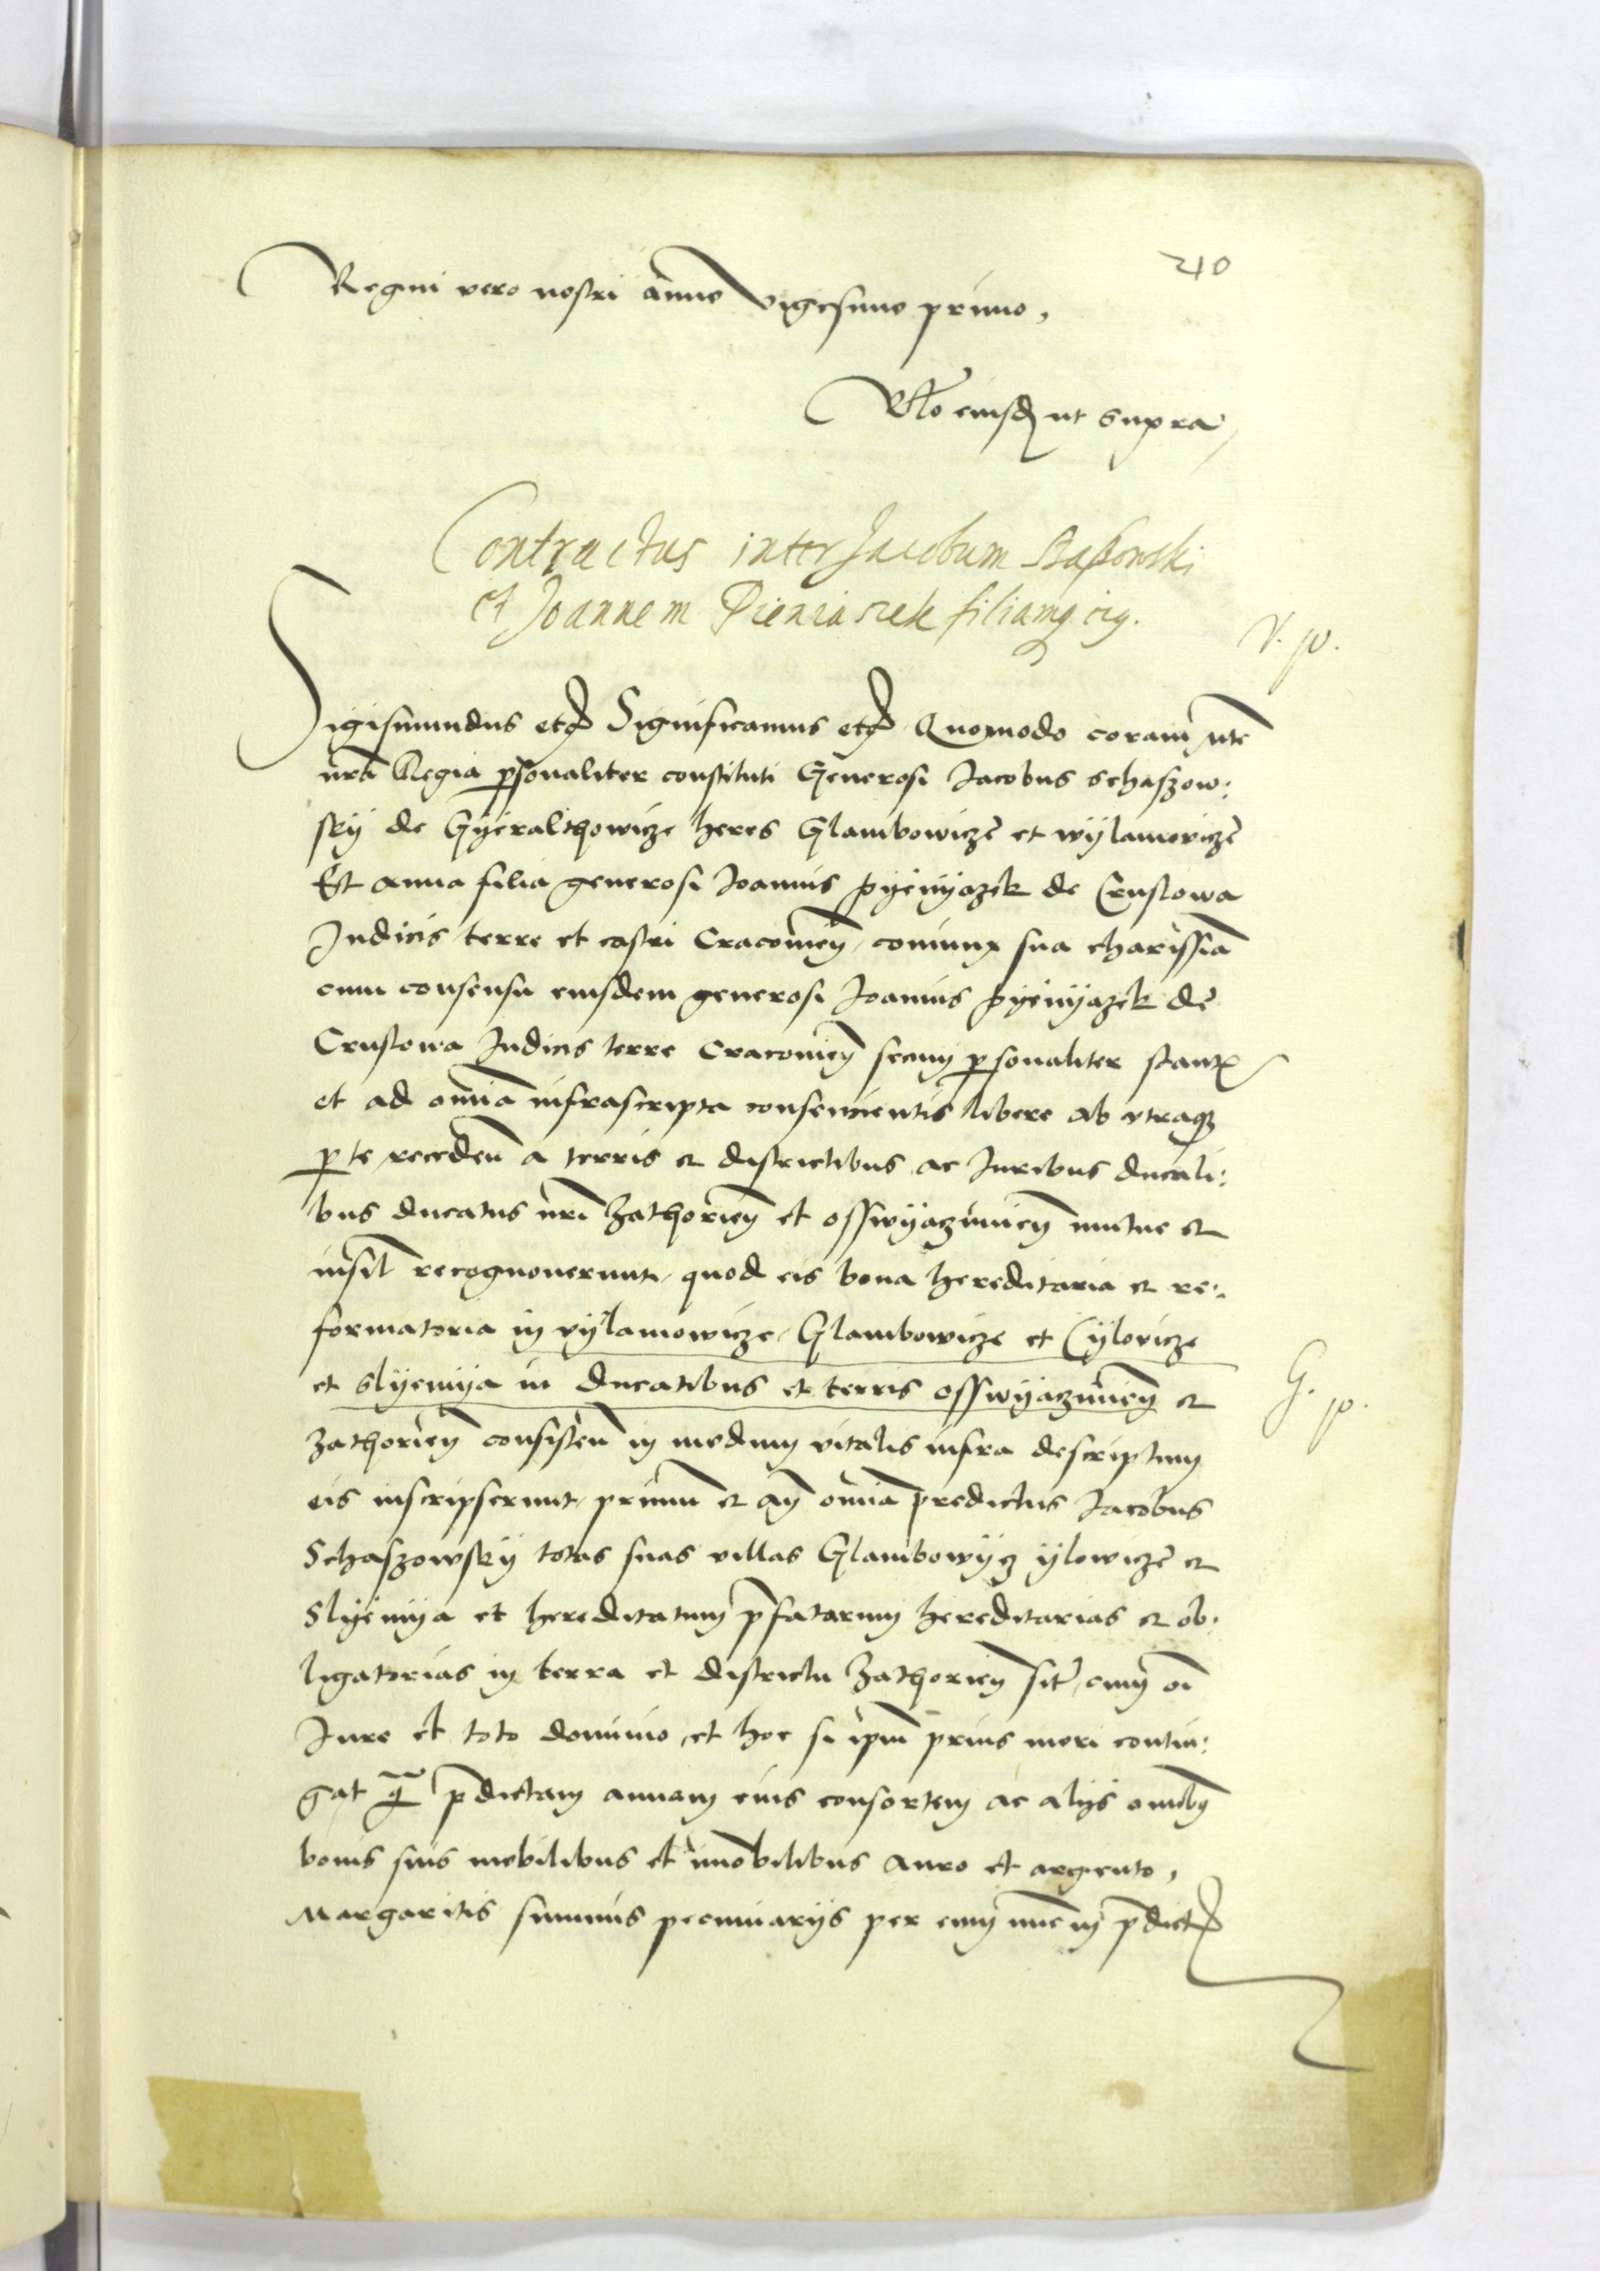 210
Regni vero nostri anno vigesimo primo,
Rlo eiusdẽ ut supra
Contractus inter Jacobum Staßowski
et Joannem Pieniaszek filiamq eig.
V. p.
Sigismundus etc Significamus etc Quomodo coram mte
nrã Regia personaliter constituti Generosi Jacobus Schaszow:
sky de Gyeralthowicze heres Glambowicze et wylamovicze
Et Anna filia generosi Joannis pyenyazek de Cruslowa
Judicis terre et castri Cracouieñ coniunx sua charissia
cum consensu eiusdem generosi Joannis pyenyazek de
Cruslowa Judicis terre Cracouieñ secum personaliter stant
et ad omnia infrascripta consencientis libere ab utraqz
pte recedeñ a terris et districtibus ac Juribus ducali:
bus ducatus nri Zathorieñ et osswyaczimieñ mutue et
insil recognouerunt quod eis bona hereditaria et re:
formatoria in vylamowicze Glambowicze et Cylovicze
et slyemya in ducatibus et terris osswyaczimieñ et
G. p.
Zathorieñ consisteñ in modum vitalis infra descriptum
eis inscripserunt primum et añ omnia predictus Jacobus
Schaszowsky totas suas villas Glambowycz ylowicze et
Slyemya et hereditatum pfatarum hereditarias et ob:
ligatorias in terra et districtu Zathorieñ sit cum oi
Jure et toto dominio et hoc si ipm prius mori contin:
gat q pdictam annam eius consortem ac alijs omibus
bonis suis mobilibus et imobilibus Auro et argento,
Margaritis summis pecuniarijs per eum nunc in pdict